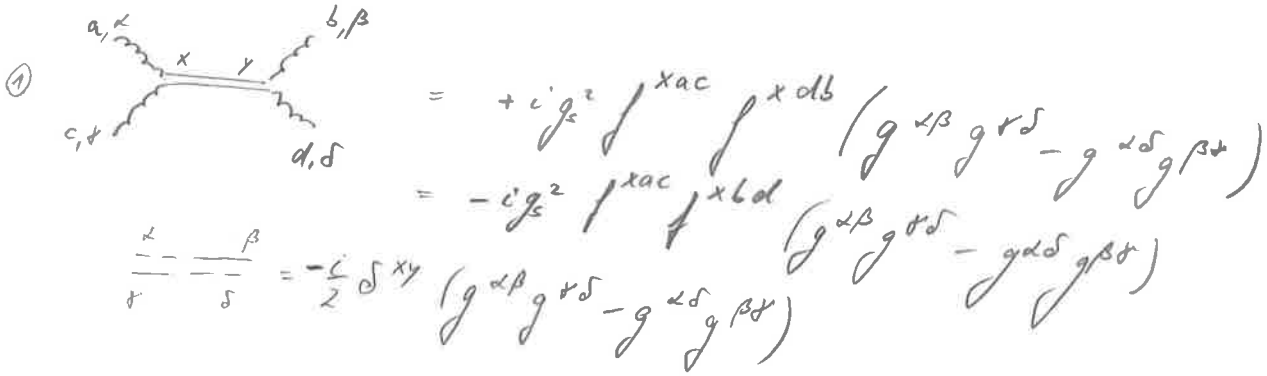 a,α b,β
① x y = + i g_s² f^{xac} f^{xdb} (g^{αβ} g^{γδ} - g^{αδ} g^{βγ})
c,γ d,δ
= - i g_s² f^{xac} f^{xbd} (g^{αβ} g^{γδ} - g^{αδ} g^{βγ})
α β
= -i/2 δ^{xy} (g^{αβ} g^{γδ} - g^{αδ} g^{βγ})
γ δ